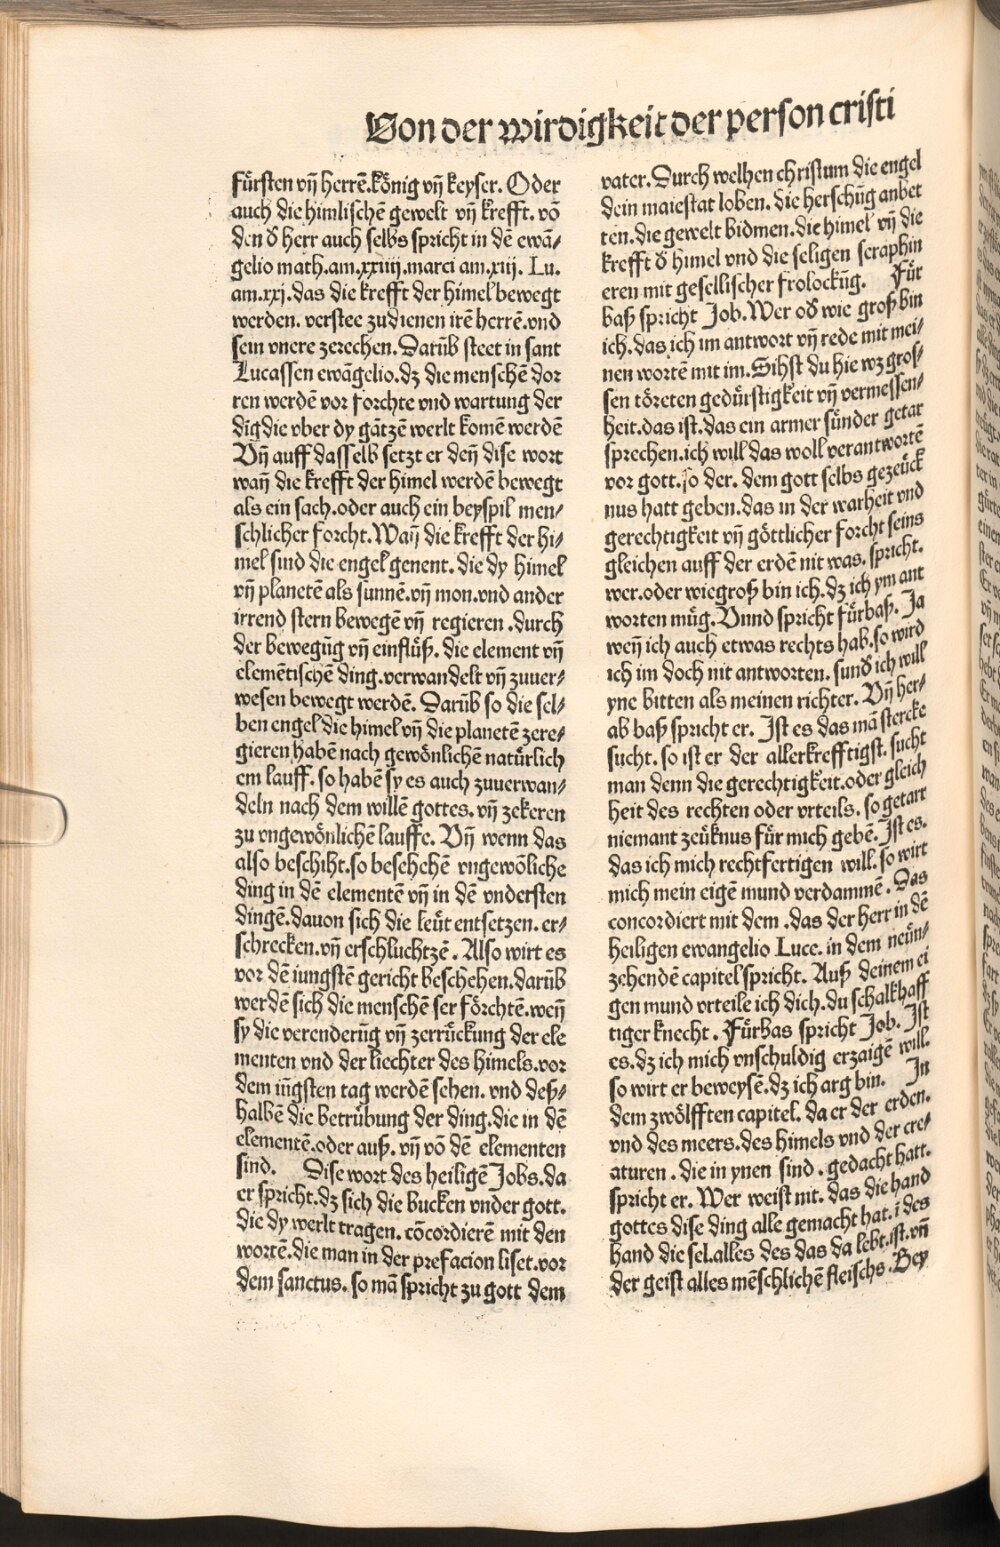 Von der wirdigkeit der person cristi
fürsten vñ herrē. König vñ keyser. Oder
auch die himlischē gewelt vñ krefft. vō
den d̕ herr auch selbs spricht in dē ewā⸗
gelio math.am.xxiiij.marci am.xiij. Lu.
am.xxj.das die krefft der himel bewegt
werden. verstee zudienen irē herrē.vnd
sein vnere zerechen.Darūb steet in sant
Lucassen ewāgelio.dz die menschē dor
ren werdē vor forchte vnd wartung der
dig die vber dy gātzē werlt komē werdē
Vñ auff dasselb setzt er deñ dise wort
wañ die krefft der himel werdē bewegt
als ein sach.oder auch ein beyspil men⸗
schlicher forcht.Wañ die krefft der hi⸗
mel sind die engel genent.die dy himel
vñ planetē als sunnē.vñ mon.vnd ander
irrend stern bewegē vñ regieren .durch
der bewegūg vñ einflüß. die element vñ
elemētischē ding.verwandelt vñ zuuer⸗
wesen bewegt werdē. Darūb so die sel⸗
ben engel die himel vñ die planetē zere⸗
gieren habē nach gewönlichē natürlich
em lauff. so habē sy es auch zuuerwan⸗
deln nach dem willē gottes. vñ zekeren
zu vngewönlichē lauffe. Vñ wenn das
also beschiht.so beschehē vngewōliche
ding in dē elementē vñ in dē vndersten
dingē.dauon sich die leüt entsetzen. er⸗
schrecken.vñ erschluchtzē . Also wirt es
vor dē iungstē gericht beschehen.darūb
werdē sich die menschē ser förchtē.weñ
sy die verenderūg vñ zerrückung der ele
menten vnd der liechter des himels.vor
dem iūgsten tag werdē sehen. vnd deß⸗
halbē die betrübung der ding.die in dē
elementē.oder auß. vñ vō dē elementen
sind. Dise wort des heiligē Jobs.da
er spricht.dz sich die bucken vnder gott.
die dy werlt tragen. cōcordierē mit den
wortē.die man in der prefacion liset.vor
dem sanctus. so mā spricht zu gott dem
vater.Durch welhen christum die engel
dein maiestat loben. die herschūg anbet
ten.die gewelt bidmen.die himel vñ die
krefft d̕ himel vnd die seligen seraphin
eren mit gesellischer frolockūg. Für
baß spricht Job.Wer od̕ wie groß bin
ich.das ich im antwort vñ rede mit mei⸗
nen wortē mit im.Sihst du hie wz gros⸗
sen töreten gedürstigkeit vñ vermessen⸗
heit.das ist.das ein armer sünder getar
sprechen.ich will das woll verantwortē
vor gott.so der. dem gott selbs gezeück
nus hatt geben.das in der warheit vnd
gerechtigkeit vñ göttlicher forcht seins
gleichen auff der erdē nit was. spricht.
wer.oder wiegroß bin ich.dz ich ym ant
worten müg.Vnnd spricht fürbaß. Ja
weñ ich auch etwas rechts hab.so wird
ich im doch nit antworten. sund̕ ich will
yne bitten als meinen richter. Vñ her⸗
ab baß spricht er. Ist es das mā stercke
sucht. so ist er der allerkrefftigst. sucht
man denn die gerechtigkeit.oder gleich
heit des rechten oder vrteils. so getart
niemant zeüknus für mich gebē.Ist es.
das ich mich rechtfertigen will.so wirt
mich mein eigē mund verdammē. Das
concordiert mit dem .das der herr in dē
heiligen ewangelio Luce. in dem neün⸗
zehendē capitel spricht. Auß deinem ei
gen mund vrteile ich dich.du schalkhaff
tiger knecht . Fürbas spricht Job. Ist
es.dz ich mich vnschuldig erzaigē will.
so wirt er beweysē.dz ich arg bin. In
dem zwölfften capitel. da er der erden.
vnd des meers.des himels vnd der cre⸗
aturen .die in ynen sind . gedacht hatt.
spricht er. Wer weist nit. das die hand
gottes dise ding alle gemacht hat.ī des
hand die sel.alles des das da lebt.ist.vñ
der geist alles mēschlichē fleischs. Bey